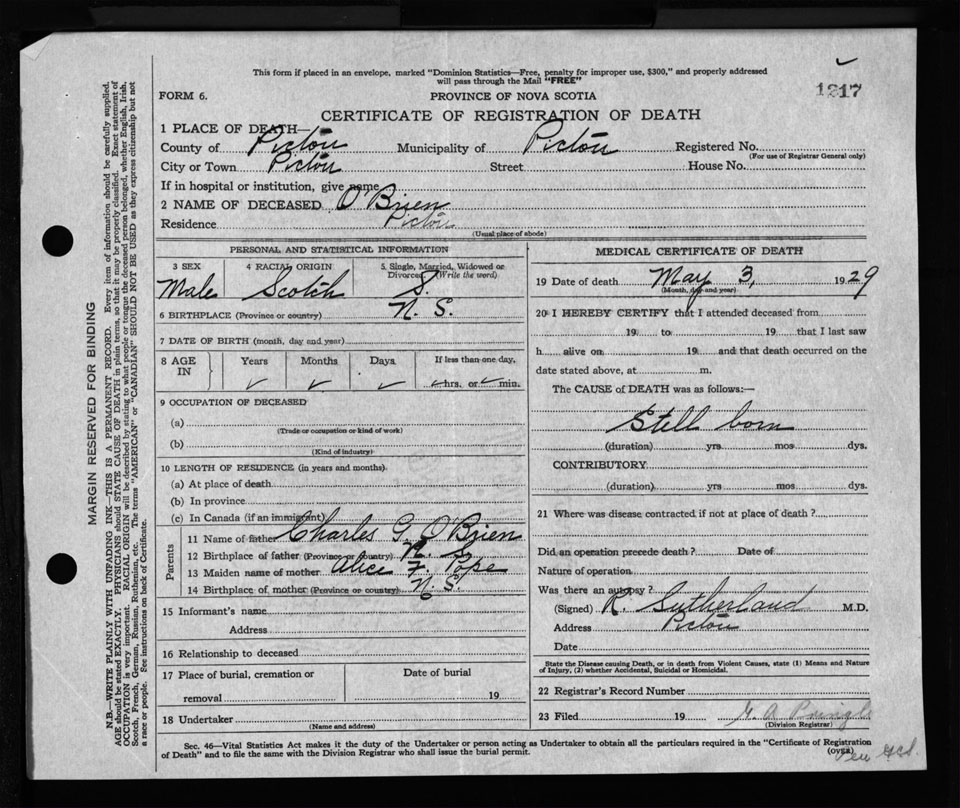 This form if placed in an envelope, marked "Dominion Statistics—Free, penalty for improper use, $300," and properly addressed
will pass through the Mail "FREE"
1217
FORM 6.
PROVINCE OF NOVA SCOTIA
CERTIFICATE OF REGISTRATION OF DEATH
1 PLACE OF DEATH—
County of Pictou Municipality of Pictou Registered No.
(For use of Registrar General only)
City or Town Pictou Street House No.
If in hospital or institution, give name
2 NAME OF DECEASED O'Brien
Residence Pictou
(Usual place of abode)
PERSONAL AND STATISTICAL INFORMATION
3 SEX 4 RACIAL ORIGIN 5. Single, Married, Widowed or
Divorced (Write the word)
Male Scotch S.
6 BIRTHPLACE (Province or country) N. S.
7 DATE OF BIRTH (month, day and year)
8 AGE IN Years Months Days If less than one day,
hrs. or min.
9 OCCUPATION OF DECEASED
(a)
(Trade or occupation or kind of work)
(b)
(Kind of industry)
10 LENGTH OF RESIDENCE (in years and months)
(a) At place of death
(b) In province
(c) In Canada (if an immigrant)
Parents
11 Name of father Charles G. O'Brien
12 Birthplace of father (Province or country) N. S.
13 Maiden name of mother Alice F. Pope
14 Birthplace of mother (Province or country) N. S.
15 Informant's name
Address
16 Relationship to deceased
17 Place of burial, cremation or
removal
Date of burial
19
18 Undertaker
(Name and address)
MEDICAL CERTIFICATE OF DEATH
19 Date of death May 3, 1929
(Month, day and year)
20 I HEREBY CERTIFY that I attended deceased from
19 to 19 that I last saw
h alive on 19 and that death occurred on the
date stated above, at m.
The CAUSE of DEATH was as follows:—
Still born
(duration) yrs mos dys.
CONTRIBUTORY
(duration) yrs mos dys.
21 Where was disease contracted if not at place of death?
Did an operation precede death? Date of
Nature of operation
Was there an autopsy?
(Signed) R. Sutherland M.D.
Address Pictou
Date
State the Disease causing Death, or in death from Violent Causes, state (1) Means and Nature
of Injury, (2) whether Accidental, Suicidal or Homicidal.
22 Registrar's Record Number
23 Filed 19 A. Pringle
(Division Registrar)
Sec. 46—Vital Statistics Act makes it the duty of the Undertaker or person acting as Undertaker to obtain all the particulars required in the "Certificate of Registration
of Death" and to file the same with the Division Registrar who shall issue the burial permit.
(OVER)
MARGIN RESERVED FOR BINDING
N.B.—WRITE PLAINLY WITH UNFADING INK—THIS IS A PERMANENT RECORD. Every item of information should be carefully supplied.
AGE should be stated EXACTLY. PHYSICIANS should STATE CAUSE OF DEATH in plain terms, so that it may be properly classified. Exact statement of
OCCUPATION is very important. RACIAL ORIGIN will be described by stating to what people or tongue the deceased person belonged, whether English, Irish,
Scotch, French, German, Russian, Ruthenian, etc. The terms "AMERICAN" or "CANADIAN" SHOULD NOT BE USED as they express citizenship but not
a race or people. See instructions on back of Certificate.